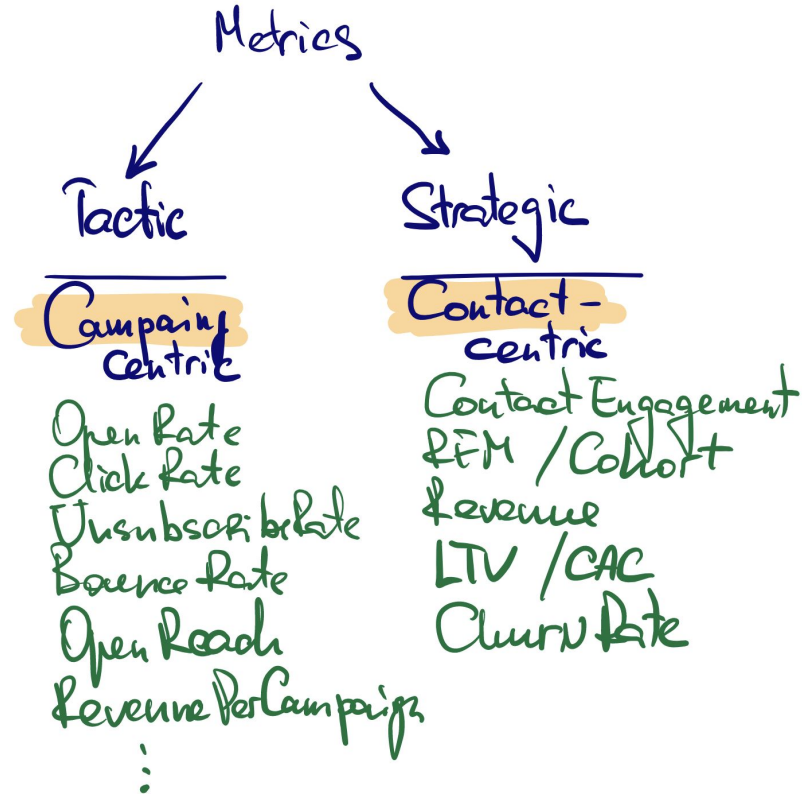 Metrics
Tactic
Campaing
centric
Open Rate
Click Rate
Unsubscribe Rate
Bounce Rate
Open Reach
Revenue Per Campaign
Strategic
Contact-
centric
Contact Engagement
RFM / Cohort
Revenue
LTV / CAC
Churn Rate